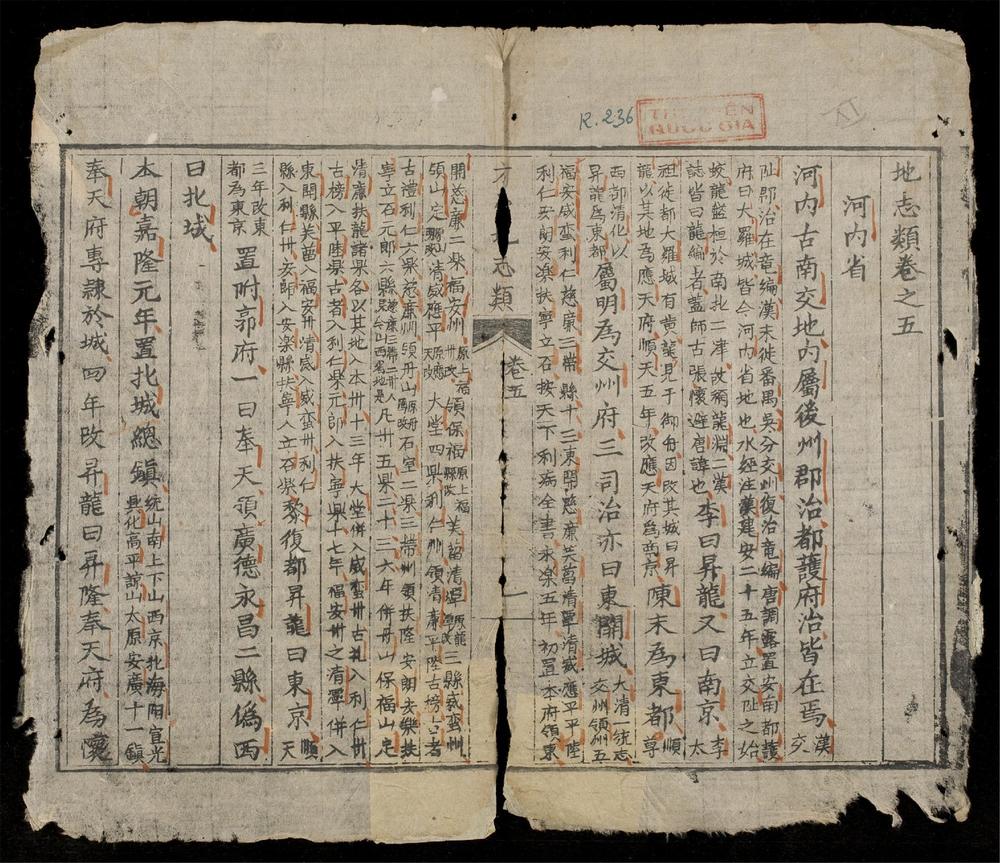 地志類卷之五
河内省
河内古南交地内屬後州郡治都護府治皆在焉漢交
趾郡治在竜編漢末徙番禺吳分交州復治竜編唐調露置安南都護
府曰大羅城皆今河内省地也水經注漢建安二十五年立交趾之始
蛟龍蟠桓於南北二津故稱龍淵二漢
誌皆曰龍編者蓋師古張懷避唐諱也李曰昇龍又曰南京李太
祖徙都大羅城有黄龍見于御舟因改其城曰昇
龍以其地為應天府順天五年改應天府為南京陳末為東都順尊
西部清化以
昇龍為東都屬明為交州府三司治亦曰東關城大清一統志
交州領州五
福安威蛮利仁慈廉三帶縣十三東關慈廉芙蒥清潭清威應平平陸
利仁安朗安楽扶寧立石按天下利病全書永楽五年初置本府領東
方 志類 卷五
關慈廉二縣福安州原上福州改領保福原上福縣改芙蒥清潭原龍潭改三縣威蛮州
領山定清威應平原應天改大堂四県利仁州領清廉平陸古榜古者
古禮利仁六県慈廉州領丹山石室二県三帶州領扶隆安朗安楽扶
寧立石元郎六縣凡廾五県二十三六年併丹山保福山定
清廉扶龍諸県各以其地入本州十三年大堂併入威蛮州古礼入利仁州
古榜入平陸県古者入利仁県元郎入扶寧県十七年福安州之清潭併入
東關縣芙蒥入福安州清威入威蛮州利仁
縣入利仁州安郎入安楽縣扶寧入立石県黎復都昇龍曰東京順天
三年改東
都為東京置附郭府一曰奉天領廣德永昌二縣偽西
曰北城
本朝嘉隆元年置北城總鎮統山南上下山西京北海陽宣光
興化高平諒山太原安廣十一鎮
奉天府專隷於城四年改昇龍曰昇隆奉天府為懷
R.236
QUỐC GIA
XI